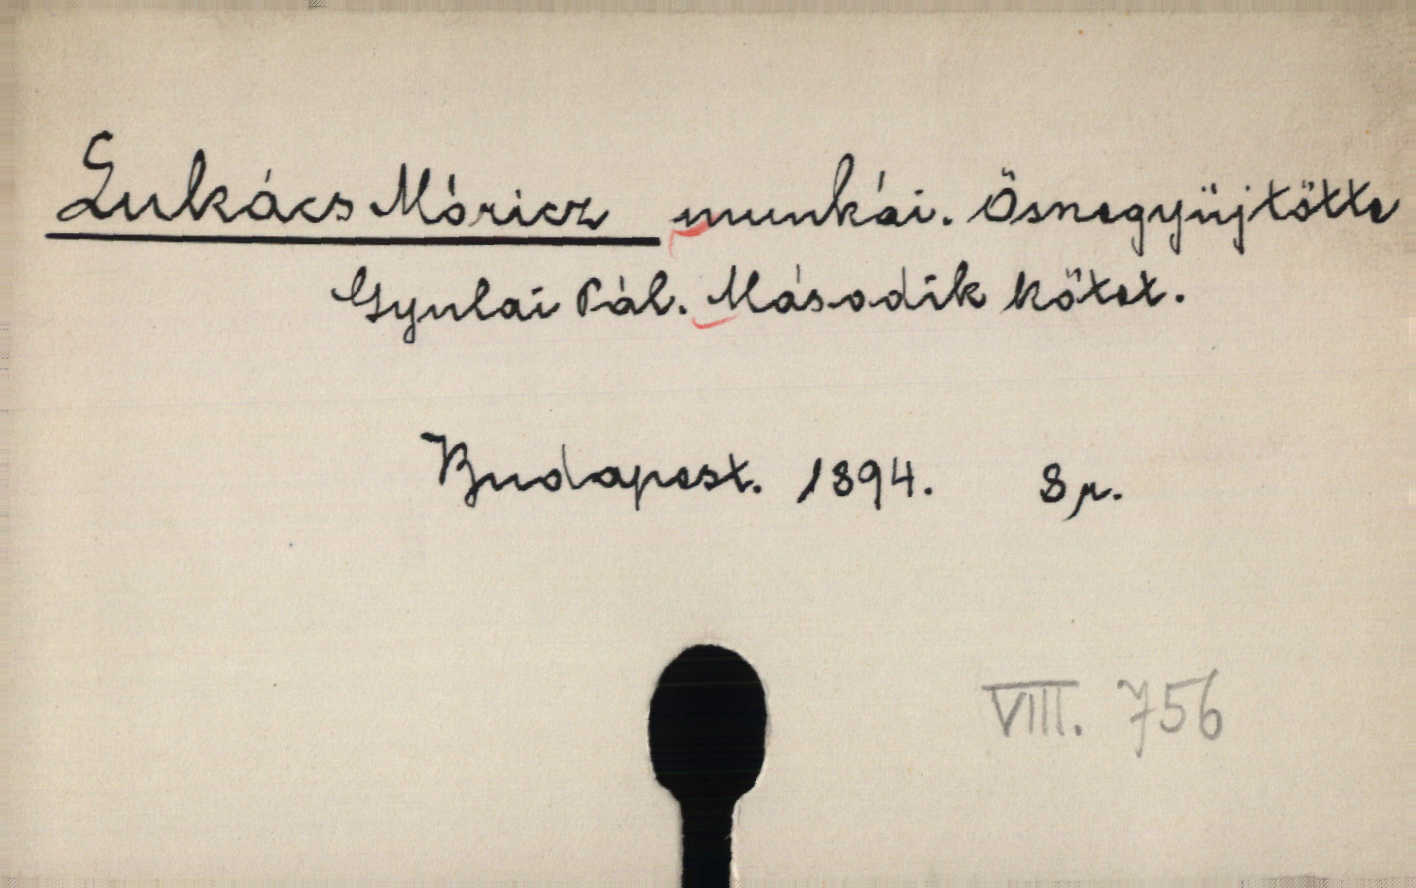 Lukács Móricz munkái. Ösnegyüjtötte
Gyulai Pál. Második kötet.
Budapest. 1894. 8r.
VIII. 756